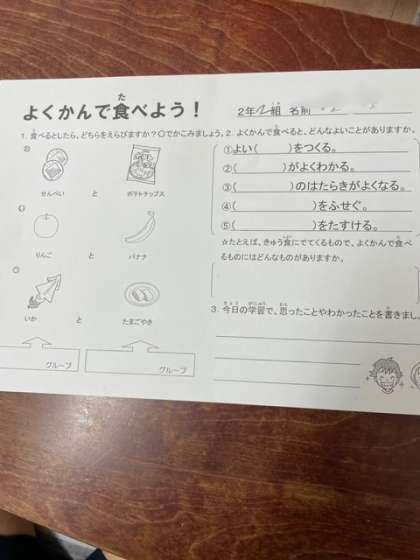 よくかんで食べよう！
た
2年 2組 名前
1. 食べるとしたら、どちらをえらびますか？○でかこみましょう。
せんべい と ポテトチップス
りんご と バナナ
いか と たまごやき
グループ グループ
2. よくかんで食べると、どんなよいことがありますか。
①よい( )をつくる。
②( )がよくわかる。
③( )のはたらきがよくなる。
④( )をふせぐ。
⑤( )をたすける。
☆たとえば、きゅう食にでてくるもので、よくかんで食べ
るものにはどんなものがありますか。
3. 今日の学習で、思ったことやわかったことを書きまし